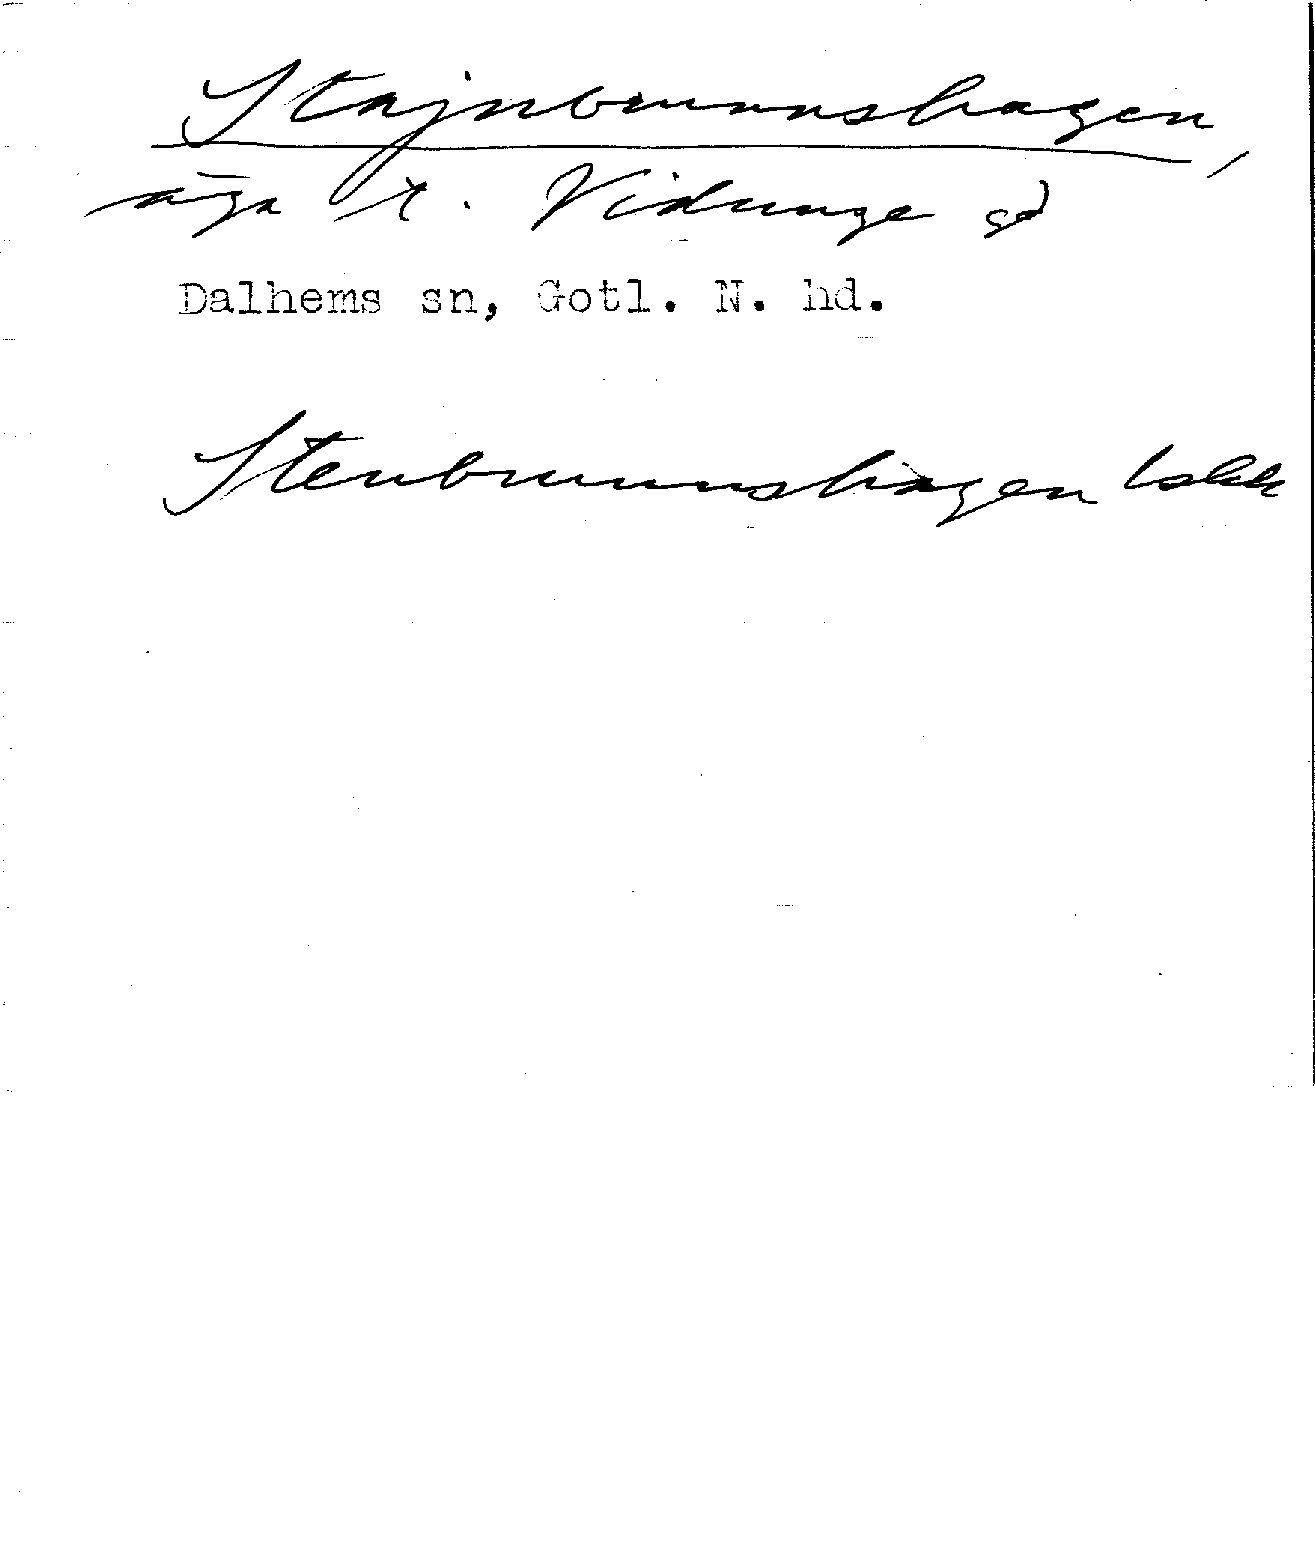 Stajnbrunnshagen,
äga t. Vidunge gd
Dalhems sn, Gotl. N. hd.
Stenbrunnshagen